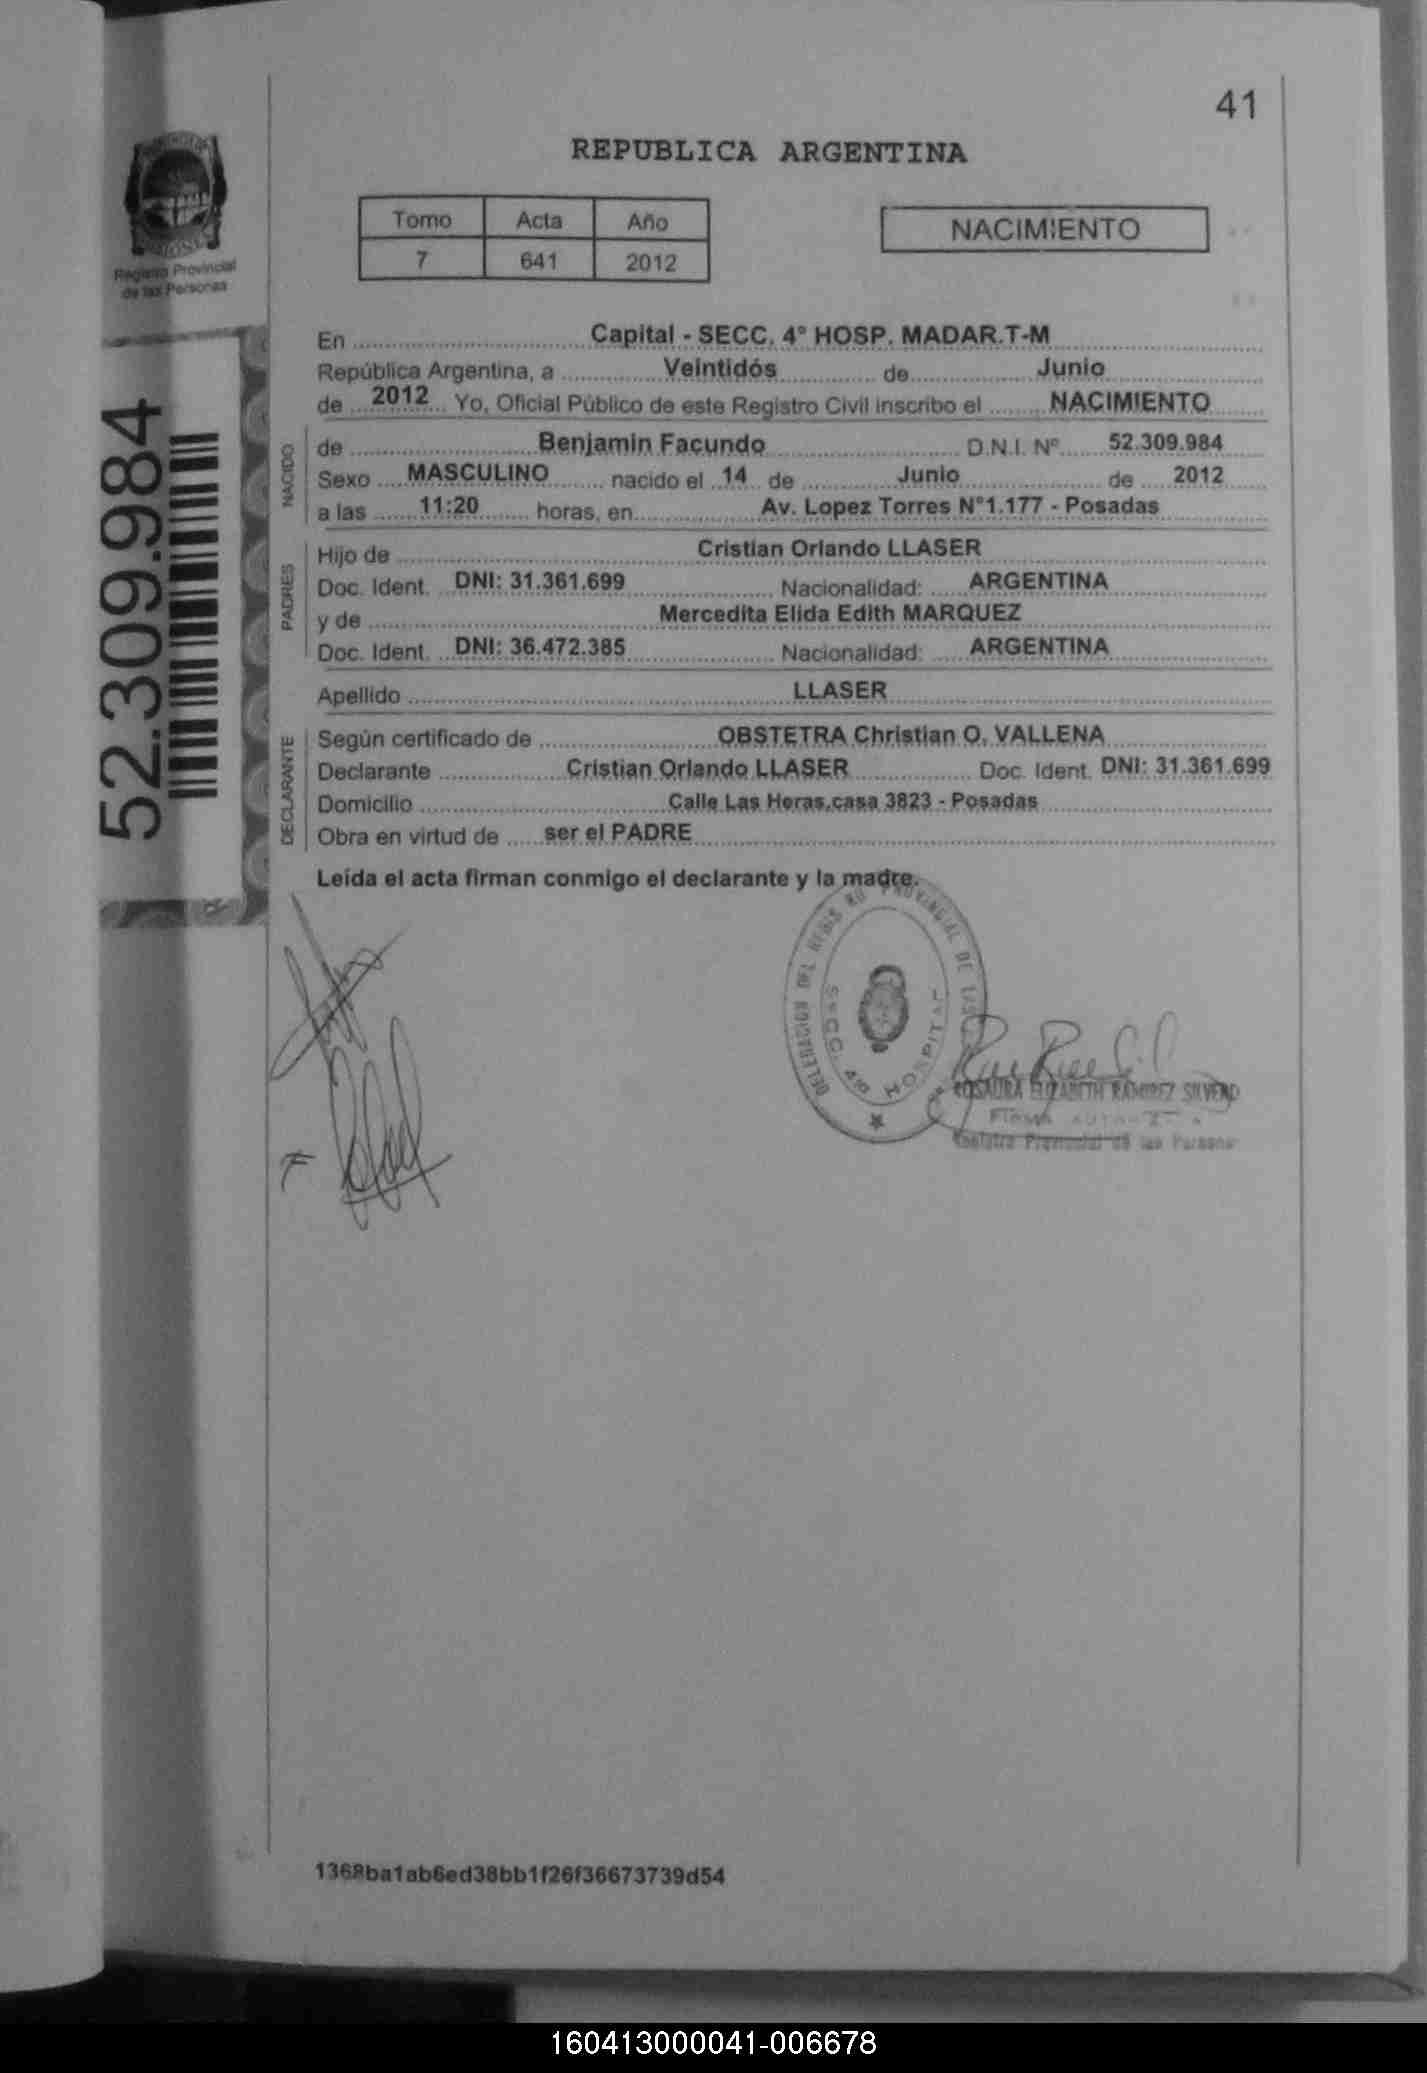 41
REPUBLICA ARGENTINA
Registro Provincial
de las Personas
Tomo Acta Año
7 641 2012
NACIMIENTO
52.309.984
En Capital - SECC. 4° HOSP. MADAR.T-M
República Argentina, a Veintidós de Junio
de 2012 Yo, Oficial Público de este Registro Civil inscribo el NACIMIENTO
NACIDO
de Benjamin Facundo D.N.I. Nº 52.309.984
Sexo MASCULINO nacido el 14 de Junio de 2012
a las 11:20 horas, en Av. Lopez Torres N°1.177 - Posadas
PADRES
Hijo de Cristian Orlando LLASER
Doc. Ident. DNI: 31.361.699 Nacionalidad: ARGENTINA
y de Mercedita Elida Edith MARQUEZ
Doc. Ident. DNI: 36.472.385 Nacionalidad: ARGENTINA
Apellido LLASER
DECLARANTE
Según certificado de OBSTETRA Christian O. VALLENA
Declarante Cristian Orlando LLASER Doc. Ident. DNI: 31.361.699
Domicilio Calle Las Heras,casa 3823 - Posadas
Obra en virtud de ser el PADRE
Leída el acta firman conmigo el declarante y la madre.
DELEGACION DEL REGISTRO PROVINCIAL DE LAS
SECC. 4ta HOSPITAL
ROSAURA ELIZABETH RAMIREZ
Registro Provincial de las Persona
1368ba1ab6ed38bb1f26f36673739d54
160413000041-006678